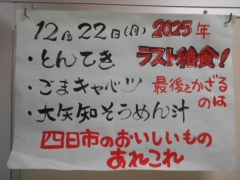 12月22日(月) 2025年
ラスト給食!
・とんてき
・ごまキャベツ
最後をかざるのは
・大矢知そうめん汁
四日市のおいしいもの
あれこれ